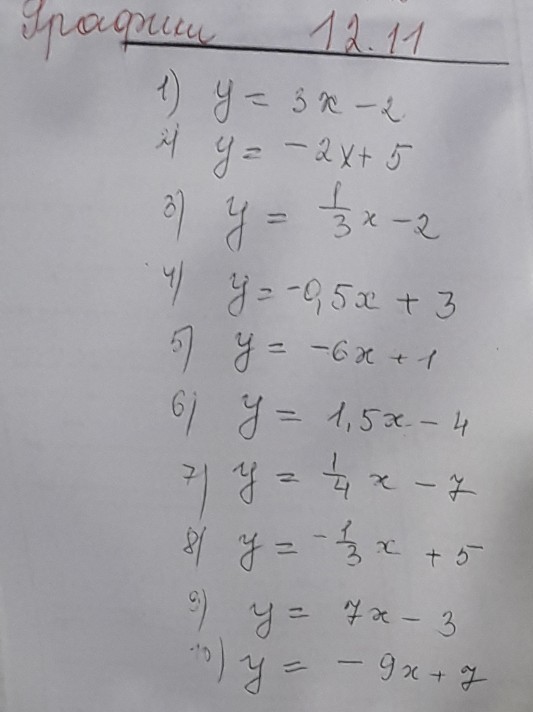 Графики 12.11
1) y = 3x - 2
2) y = -2x + 5
3) y = 1/3 x - 2
4) y = -0,5x + 3
5) y = -6x + 1
6) y = 1,5x - 4
7) y = 1/4 x - 7
8) y = -1/3 x + 5
9) y = 7x - 3
10) y = -9x + 7